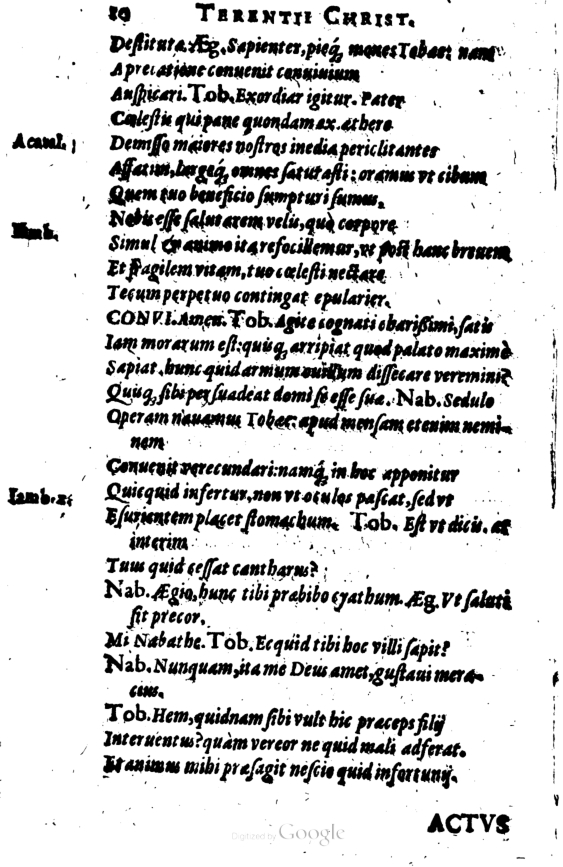 80 TERENTII CHRIST.
Deſtituta. Æg. Sapienter, pieq́, mones Tobæe: nam
A precatione conuenit conuiuium
Auſpicari. Tob. Exordiar igitur. Pater
Cœleſtis qui pane quondam ex æthere
Acatal. Demiſſo maiores noſtros inedia periclitantes
Affatim, largeq́, omnes ſaturaſti: oramus vt cibum
Quem tuo beneficio ſumpturi ſumus,
Iamb. Nobis eſſe ſalutarem velis, quò corpore
Simul & animo ita refocillemur, vt poſt hanc breuem
Et fragilem vitam, tuo cœleſti nectare
Tecum perpetuo contingat epularier.
CONVI. Amen. Tob. Agite cognati chariſſimi, ſatis
Iam moratum eſt: quiſq, arripiat quod palato maximè
Sapiat, hunc quid armum diſſecare veremini?
Quiſq, ſibi perſuadeat domi ſe eſſe ſua. Nab. Sedulo
Operam nauamus Tobæe: apud menſam etenim nemi-
nem
Conuenit verecundari: namq́, in hoc apponitur
Iamb. x: Quicquid infertur, non vt oculos paſcat, ſed vt
Eſurientem placet ſtomachum. Tob. Eſt vt dicis. at
interim
Tuus quid ceſſat cantharus?
Nab. Ægio, hunc tibi præbibo cyathum. Æg. Vt ſaluti
ſit precor.
Mi Nabathe. Tob. Ecquid tibi hoc villi ſapit?
Nab. Nunquam, ita me Deus amet, guſtaui mera-
cius.
Tob. Hem, quidnam ſibi vult hic præceps filij
Interuentus? quàm vereor ne quid mali adferat.
Et animus mihi præſagit neſcio quid infortunij.
ACTVS
Digitized by Google